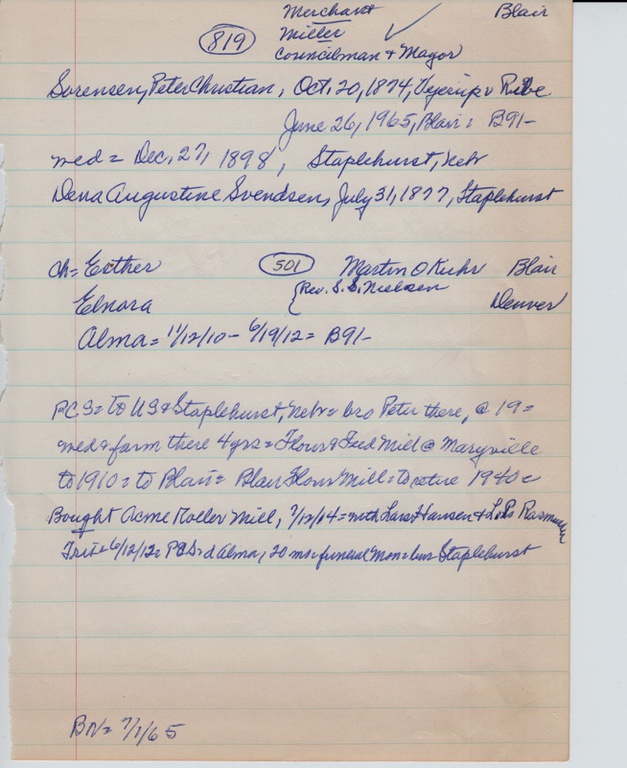 Merchant Blair
819 Miller
Councilman & Mayor
Sorensen, Peter Christian, Oct. 20, 1874, Vejrup v Ribe
June 26, 1965, Blair: B91-
med = Dec. 27, 1898, Staplehurst, Nebr
Dena Augustine Svendsen, July 31, 1877, Staplehurst
ch = Esther 501 Martin O Kuhr Blair
Elnora {Rev. S.S. Nielsen Denver
Alma = 11/12/10 - 6/19/12 = B91-
P.C.S = to US & Staplehurst, Nebr = bro Peter there, @ 19 =
med & farm there 4 yrs = Flour & Feed Mill @ Maryville
to 1910 = to Blair = Blair Flour Mill = to retire 1940 =
Bought Acme Roller Mill, 7/12/14 = with Lars Hansen & Rasmussen
6/12/12 = PCS = d Alma, 20 mo = funeral Mon = bur Staplehurst
BN = 7/1/65